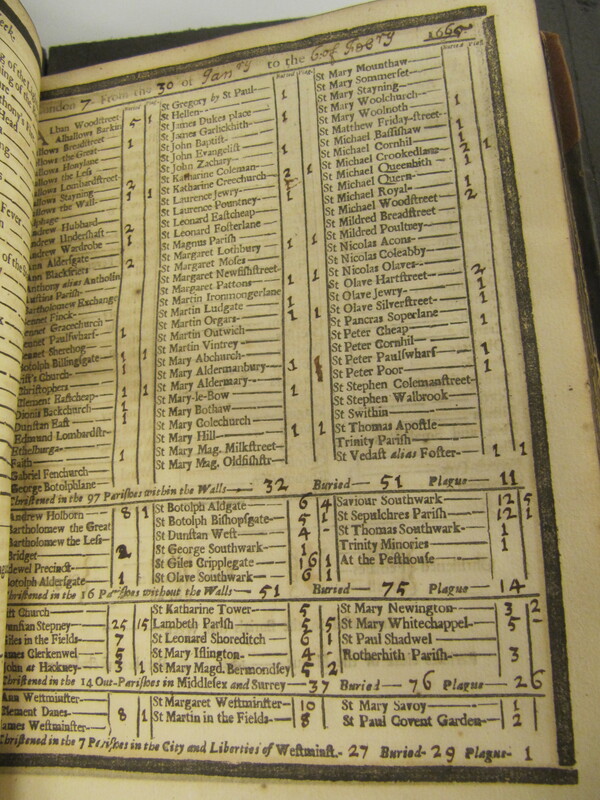 London 7 From the 30 of Janry to the 6 of Febry 1665
Buried Plag.
Alban Woodſtreet 5 1
Alhallows Barkin
Breadſtreet 1
the Great
Honylane
the Leſs
Lombardſtreet 2
Stayning 1 1
the Wall
Hubbard 2
Underſhaft 1
Wardrobe
Alderſgate 2
Blackfriers
alias Antholin
Pariſh
Exchange
Finck
Gracechurch
Paulſwharf 1
Sherehog
Botolph Billingſgate 1 1
Chriſt's Church 1
Chriſtophers
Clement Eaſtcheap 1 1
Dionis Backchurch 1
Dunſtan Eaſt 1
Edmund Lombardſtr
Ethelburga
Faith 1
Gabriel Fenchurch
George Botolphlane
St Gregory by St Paul 1
St Hellen
St James Dukes place 1
St James Garlickhith
St John Baptiſt
St John Evangeliſt 1
St John Zachary
St Katharine Coleman 1
St Katharine Creechurch 2
St Laurence Jewry
St Laurence Pountney 1
St Leonard Eaſtcheap
St Leonard Foſterlane
St Magnus Pariſh
St Margaret Lothbury 1 1
St Margaret Moſes
St Margaret Newfiſhſtreet
St Margaret Pattons 1 1
St Martin Ironmongerlane
St Martin Ludgate 1
St Martin Orgars 1
St Martin Outwich
St Martin Vintrey
St Mary Abchurch
St Mary Aldermanbury 1
St Mary Aldermary
St Mary-le-Bow 1
St Mary Bothaw
St Mary Colechurch
St Mary Hill 1 1
St Mary Mag. Milkſtreet
St Mary Mag. Oldfiſhſtr
St Mary Mounthaw
St Mary Sommerſet
St Mary Stayning
St Mary Woolchurch 1
St Mary Woolnoth
St Matthew Friday-ſtreet 1
St Michael Baſſiſhaw 1
St Michael Cornhil 2 1
St Michael Crookedlane 1
St Michael Queenhith 1
St Michael Quern 1
St Michael Royal 1
St Michael Woodſtreet 2
St Mildred Breadſtreet
St Mildred Poultney
St Nicolas Acons
St Nicolas Coleabby
St Nicolas Olaves
St Olave Hartſtreet 2
St Olave Jewry 1
St Olave Silverſtreet 1
St Pancras Soperlane 1
St Peter Cheap
St Peter Cornhil
St Peter Paulſwharf 1
St Peter Poor 1
St Stephen Colemanſtreet
St Stephen Walbrook
St Swithin
St Thomas Apoſtle 1
Trinity Pariſh
St Vedaſt alias Foſter 1 1
Chriſtened in the 97 Pariſhes within the Walls 32 Buried 51 Plague 11
Andrew Holborn 8 1
Bartholomew the Great
Bartholomew the Leſs
Bridget 2
Bridewel Precinct
Botolph Alderſgate 1
St Botolph Aldgate 6 4
St Botolph Biſhopſgate 5 1
St Dunſtan Weſt 4 -
St George Southwark 1
St Giles Cripplegate 16 1
St Olave Southwark 6 1
Saviour Southwark 12 5
St Sepulchres Pariſh 12 1
St Thomas Southwark 1
Trinity Minories 1
At the Peſthouſe
Chriſtened in the 16 Pariſhes without the Walls 51 Buried 75 Plague 14
Church
Dunſtan Stepney 25 15
Giles in the Fields 7
James Clerkenwel 5
John at Hackney 3 1
St Katharine Tower 5
Lambeth Pariſh 5 5
St Leonard Shoreditch 6 1
St Mary Iſlington 4 -
St Mary Magd. Bermondſey 5 2
St Mary Newington 3 2
St Mary Whitechappel 5 -
St Paul Shadwel
Rotherhith Pariſh 3
Chriſtened in the 14 Out-Pariſhes in Middleſex and Surrey 37 Buried 76 Plague 26
Ann Weſtminſter
Clement Danes 8 1
James Weſtminſter
St Margaret Weſtminſter 10
St Martin in the Fields 8
St Mary Savoy 1
St Paul Covent Garden 2
Chriſtened in the 7 Pariſhes in the City and Liberties of Weſtminſt. 27 Buried 29 Plague 1